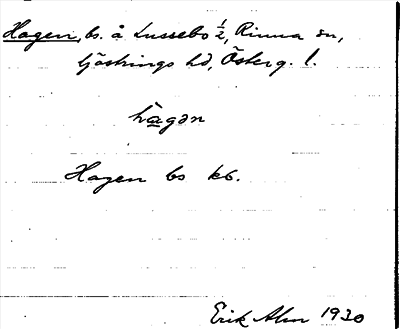 Hagen, bs. å Lussebo ½, Rinna sn,
Göstrings hd, Österg. l.
hagən
Hagen bs kb.
Erik Alm 1930